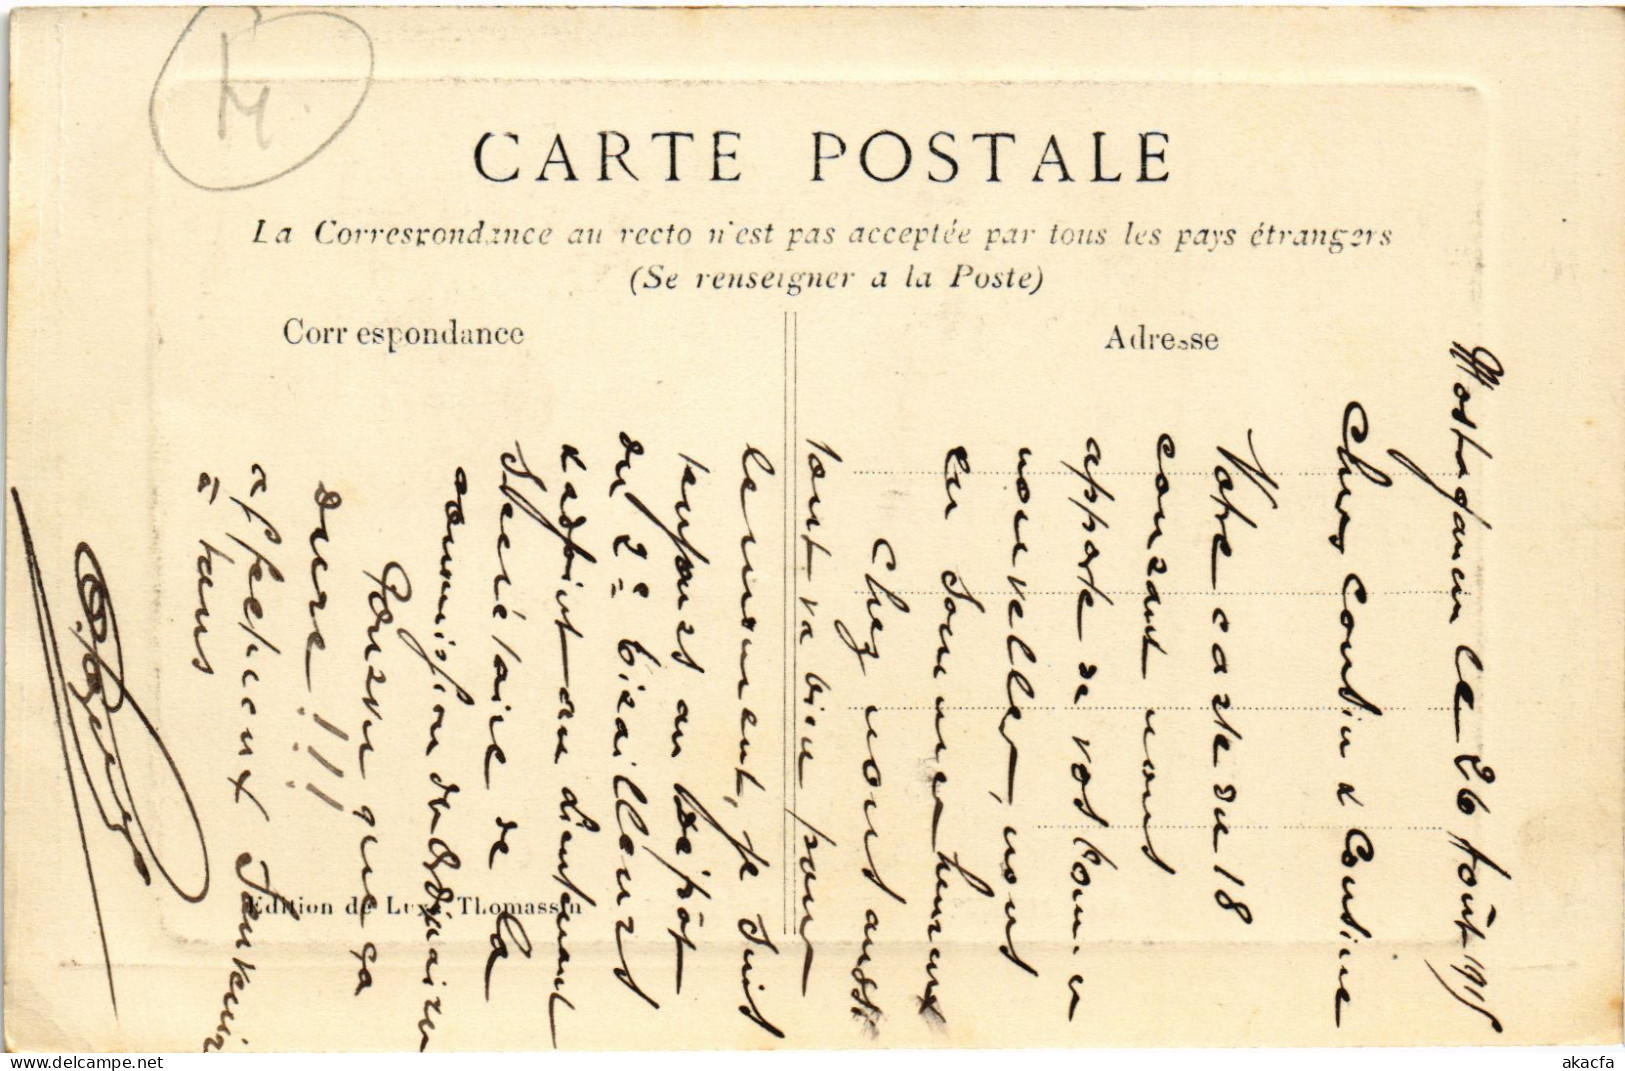 M.
CARTE POSTALE
La Correspondance au recto n'est pas acceptée par tous les pays étrangers
(Se renseigner a la Poste)
Correspondance
Adresse
Edition de Luxe Thomassin
Mostaganem le 26 Août 1915
Chers Cousin & Cousine
Votre carte du 18
courant nous
apporte de vos bonnes
nouvelles, nous
en sommes heureux
Chez nous aussi
tout va bien pour
le moment, je suis
toujours au Dépôt
du 2e tirailleurs
& adjoint au Lieutenant
Secrétaire de la
commission de
Pourvu que ça
dure !!!
affectueux Souvenir
à tous
akacfa